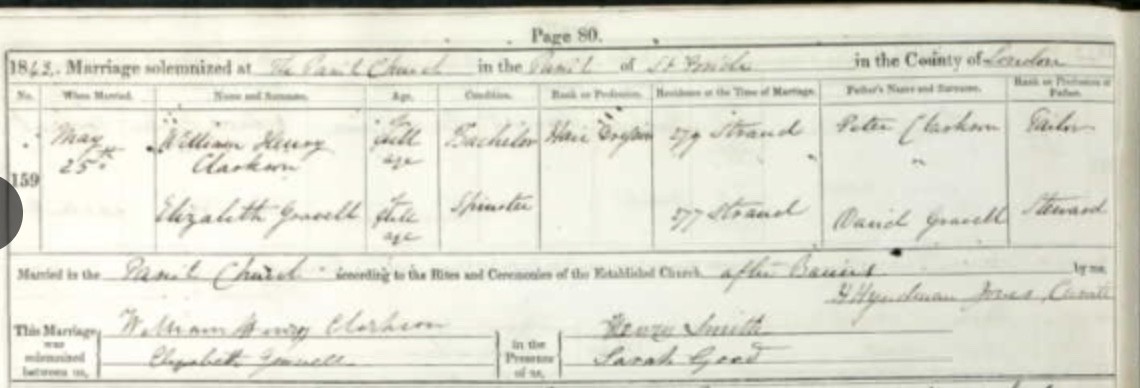 Page 80.
1863. Marriage solemnized at The Parish Church in the Parish of St Bride in the County of London
No. When Married. Name and Surname. Age. Condition. Rank or Profession. Residence at the Time of Marriage. Father's Name and Surname. Rank or Profession of Father.
159 May 25th William Henry Clarkson Full age Bachelor Hair Dresser 279 Strand Peter Clarkson Tailor
Elizabeth Gravell Full age Spinster 277 Strand David Gravell Steward
Married in the Parish Church according to the Rites and Ceremonies of the Established Church after Banns by me,
Hyndman Jones, Curate
This Marriage was solemnized between us, William Henry Clarkson Elizabeth Gravell in the Presence of us, Henry Smith Sarah Good